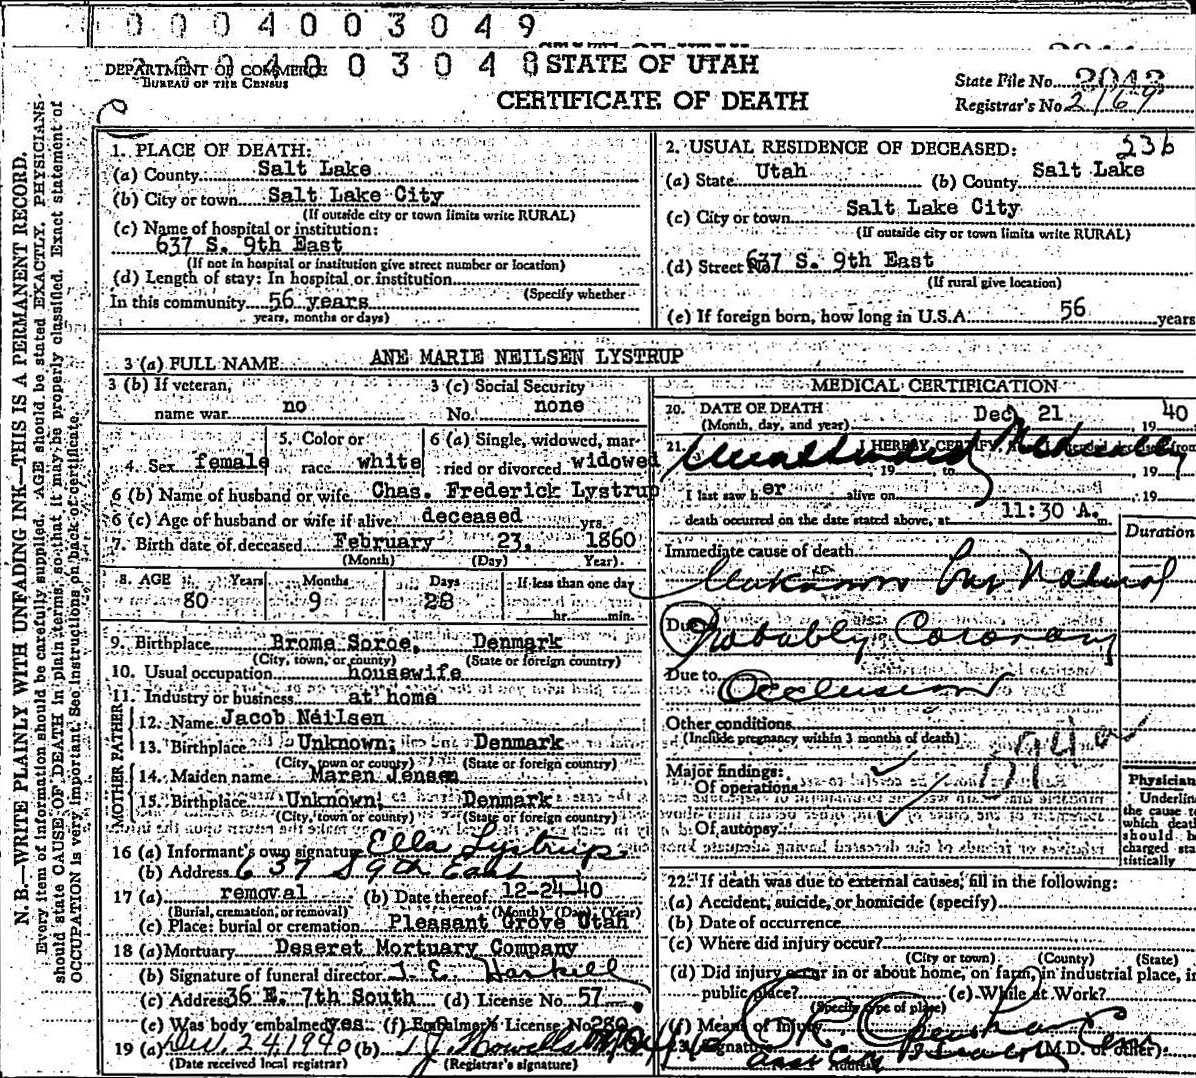 0004003049
0004003048
STATE OF UTAH
DEPARTMENT OF COMMERCE
BUREAU OF THE CENSUS
CERTIFICATE OF DEATH
State File No. 2043
Registrar's No 2169
N. B.—WRITE PLAINLY WITH UNFADING INK—THIS IS A PERMANENT RECORD.
Every item of information should be carefully supplied. AGE should be stated EXACTLY. PHYSICIANS
should state CAUSE OF DEATH in plain terms, so that it may be properly classified. Exact statement of
OCCUPATION is very important. See instructions on back of certificate.
1. PLACE OF DEATH:
(a) County Salt Lake
(b) City or town Salt Lake City
(If outside city or town limits write RURAL)
(c) Name of hospital or institution:
637 S. 9th East
(If not in hospital or institution give street number or location)
(d) Length of stay: In hospital or institution
(Specify whether
In this community 56 years
years, months or days)
536
2. USUAL RESIDENCE OF DECEASED:
(a) State Utah (b) County Salt Lake
(c) City or town Salt Lake City
(If outside city or town limits write RURAL)
(d) Street No. 637 S. 9th East
(If rural give location)
(e) If foreign born, how long in U.S.A. 56 years
3 (a) FULL NAME ANE MARIE NEILSEN LYSTRUP
3 (b) If veteran, 3 (c) Social Security
name war no No. none
4. Sex female 5. Color or race white 6 (a) Single, widowed, married or divorced widowed
6 (b) Name of husband or wife Chas. Frederick Lystrup
6 (c) Age of husband or wife if alive deceased yrs.
7. Birth date of deceased February 23, 1860
(Month) (Day) Year)
8. AGE Years Months Days If less than one day
80 9 28 hr. min.
9. Birthplace Brome Soroe, Denmark
(City, town, or county) (State or foreign country)
10. Usual occupation housewife
11. Industry or business at home
FATHER
12. Name Jacob Neilsen
13. Birthplace Unknown, Denmark
(City, town or county) (State or foreign country)
MOTHER
14. Maiden name Maren Jensen
15. Birthplace Unknown, Denmark
(City, town or county) (State or foreign country)
16 (a) Informant's own signature Ella Lystrup
(b) Address 637 S 9th East
17 (a) removal (b) Date thereof 12-24-40
(Burial, cremation, or removal) (Month) (Day) (Year)
(c) Place: burial or cremation Pleasant Grove Utah
18 (a) Mortuary Deseret Mortuary Company
(b) Signature of funeral director
(c) Address 36 E. 7th South (d) License No. 57
(e) Was body embalmed yes (f) Embalmer's License No. 280
19 (a) Dec. 24, 1940 (b)
(Date received local registrar) (Registrar's signature)
MEDICAL CERTIFICATION
20. DATE OF DEATH Dec. 21, 1940
(Month, day, and year)
21. I HEREBY CERTIFY,
Unattended Medically
, 19 to , 19
I last saw her alive on , 19
death occurred on the date stated above, at 11:30 A. m.
Duration
Immediate cause of death
Unknown but Natural
Due to Probably Coronary
Due to Occlusion
Other conditions
(Include pregnancy within 3 months of death)
Major findings:
Of operations
Of autopsy
Physician
Underline
the cause to
which death
should be
charged sta-
tistically
22. If death was due to external causes, fill in the following:
(a) Accident, suicide, or homicide (specify)
(b) Date of occurrence
(c) Where did injury occur?
(City or town) (County) (State)
(d) Did injury occur in or about home, on farm, in industrial place, in
public place? (e) While at Work?
(Specify type of place)
(f) Means of Injury
23. Signature (M.D. or other)
Address